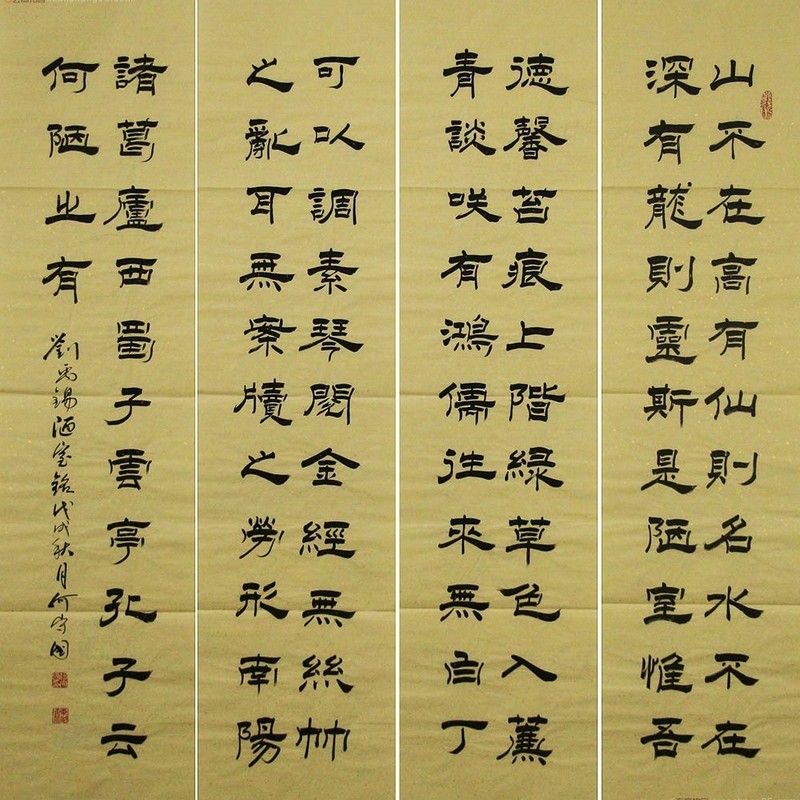 山不在高有仙則名水不在
深有龍則靈斯是陋室惟吾
徳馨苔痕上階緑草色入薕
青談咲有鴻儒往來無白丁
可以調素琴閲金經無絲竹
之亂耳無案牘之勞形南陽
諸葛廬西蜀子雲亭孔子云
何陋之有
劉禹錫陋室銘戊戌秋月何守國